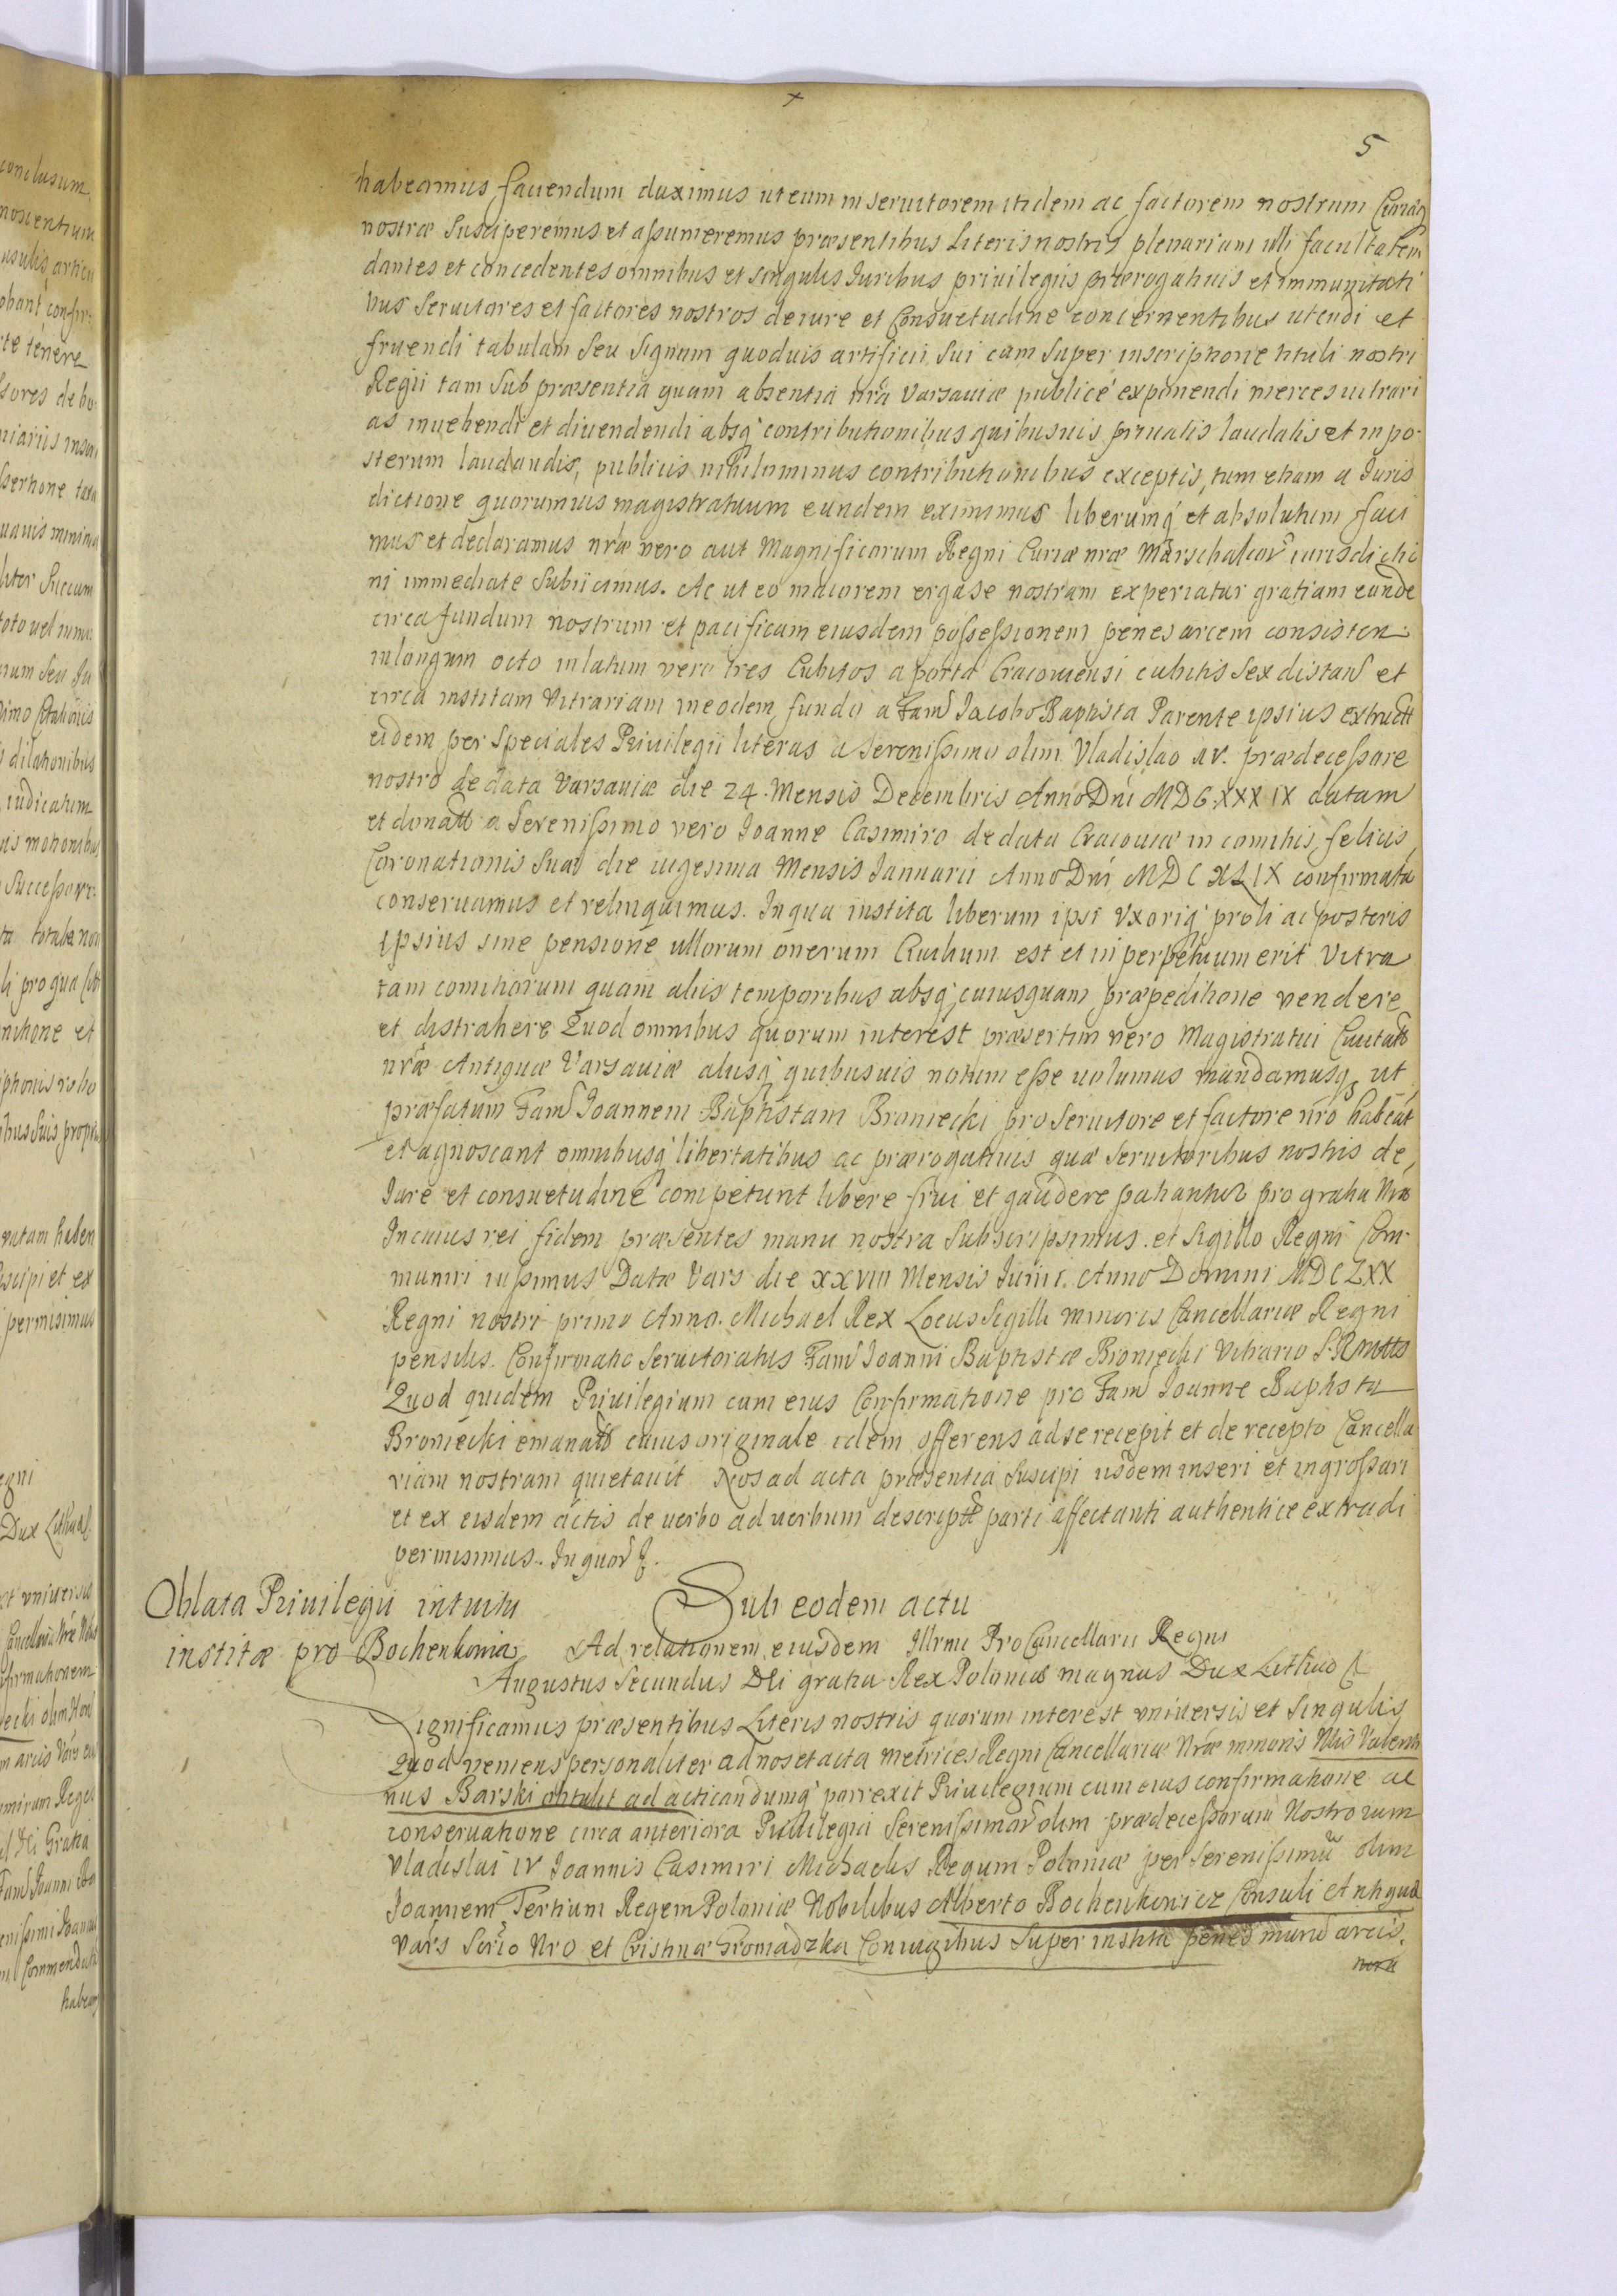 5
habeamus fauendum duximus ut eum in seruitorem itidem ac factorem nostrum Curiæq
nostræ susciperemus et assumeremus præsentibus Literis nostris plenariam illi facultatem
dantes et concedentes omnibus et singulis Iuribus priuilegiis prærogatiuis et immunitati
bus seruitores et factores nostros de iure et Consuetudine concernentibus utendi et
fruendi tabulam seu signum quoduis artificii sui cum super inscriptione tituli nostri
Regii tam sub præsentia quam absentia nra Varsauiæ publicé exponendi merces uitrari
as inuehendi et diuendendi absq contributionibus quibusuis priuatis laudatis et in po-
sterum laudandis, publicis nihilominus contributionibus exceptis, tum etiam a Iuris
dictione quorumuis magistratuum eundem eximimus liberumq et absolutum faci
mus et declaramus nræ vero aut Magnificorum Regni Curiæ nræ Marschalcor iurisdictio
ni immediate subiicimus. Ac ut eo maiorem erga se nostram experiatur gratiam eunde
circa fundum nostrum et pacificam eiusdem possessionem penes arcem consisten
in longum octo in latum vero tres Cubitos a porta Cracouiensi cubitis sex distan et
circa institam Vitrariam in eodem fundo a Fam Iacobo Baptista Parente ipsius extructt
eidem per speciales Priuilegii literas a Serenissimo olim Vladislao IV. prædecessore
nostro de data Varsauiæ die 24. Mensis Decembris Anno Dni MDCXXXIX datam
et donatt a Serenissimo vero Ioanne Casimiro de data Cracouiæ in comitiis felicis
Coronationis suæ die uigesima Mensis Ianuarii Anno Dni MDCXLIX confirmata
conseruamus et relinquimus. In qua instita liberum ipsi Vxoriq proli ac posteris
ipsius sine pensione ullorum onerum Ciuilium est et in perpétuum erit Vitra
tam comitiorum quam aliis temporibus absq cuiusquam præpeditione vendere
et distrahere Quod omnibus quorum interest præsertim vero Magistratui Ciuitatis
nræ Antiquæ Varsauiæ aliisq quibusuis notum esse uolumus mandamusq ut
præfatum Fam Ioannem Baptistam Broniecki pro seruitore et factore nro habeat
et agnoscant omnibusq libertatibus ac prærogatiuis quæ seruitoribus nostris de
Iure et consuetudine competunt libere frui et gaudere patiantur pro gratia nra
In cuius rei fidem præsentes manu nostra subscripsimus et Sigillo Regni Com-
muniri iussimus Datæ Vars die XXVIII Mensis Iunii. Anno Domini MDCLXX
Regni nostri primo Anno. Michael Rex Locus Sigilli minoris Cancellariæ Regni
pensilis. Confirmatio Seruitoratus Fam Ioanni Baptistæ Broniecki Vitrario S R mttis
Quod quidem Priuilegium cum eius Confirmatione pro Fam Ioanne Baptista
Broniecki emanatt cuius originale idem offerens ad se recepit et de recepto Cancella
riam nostram quietauit Nos ad acta præsentia suscipi iisdem inseri et ingrossari
et ex eisdem actis de uerbo ad uerbum descriptt parti affectanti authentice extradi
permisimus. In quor
Oblata Priuilegii intuitu
institæ pro Bochenkowicz
Sub eodem actu
Ad relationem eiusdem Illrmi ProCancellarii Regni
Augustus Secundus Dei gratia Rex Poloniæ magnus Dux Lithuo
Significamus præsentibus Literis nostris quorum interest vniuersis et singulis
Quod veniens personaliter ad nos et acta metrices Regni Cancellariæ Nræ minoris Nblis Valenti
nus Barski obtulit ad acticandumq porrexit Priuilegium cum eius confirmatione ac
conseruatione circa anteriora Priuilegia Serenissimor olim prædecessorum Nostrorum
Vladislai IV Ioannis Casimiri Michaelis Regum Poloniæ per Serenissimu olim
Ioannem Tertium Regem Poloniæ Nobilibus Alberto Bochenkowicz Consuli Antiquæ
Vars Serio Nro et Cristinæ Gromadzka Coniugibus super instita penes muru arcis
nora